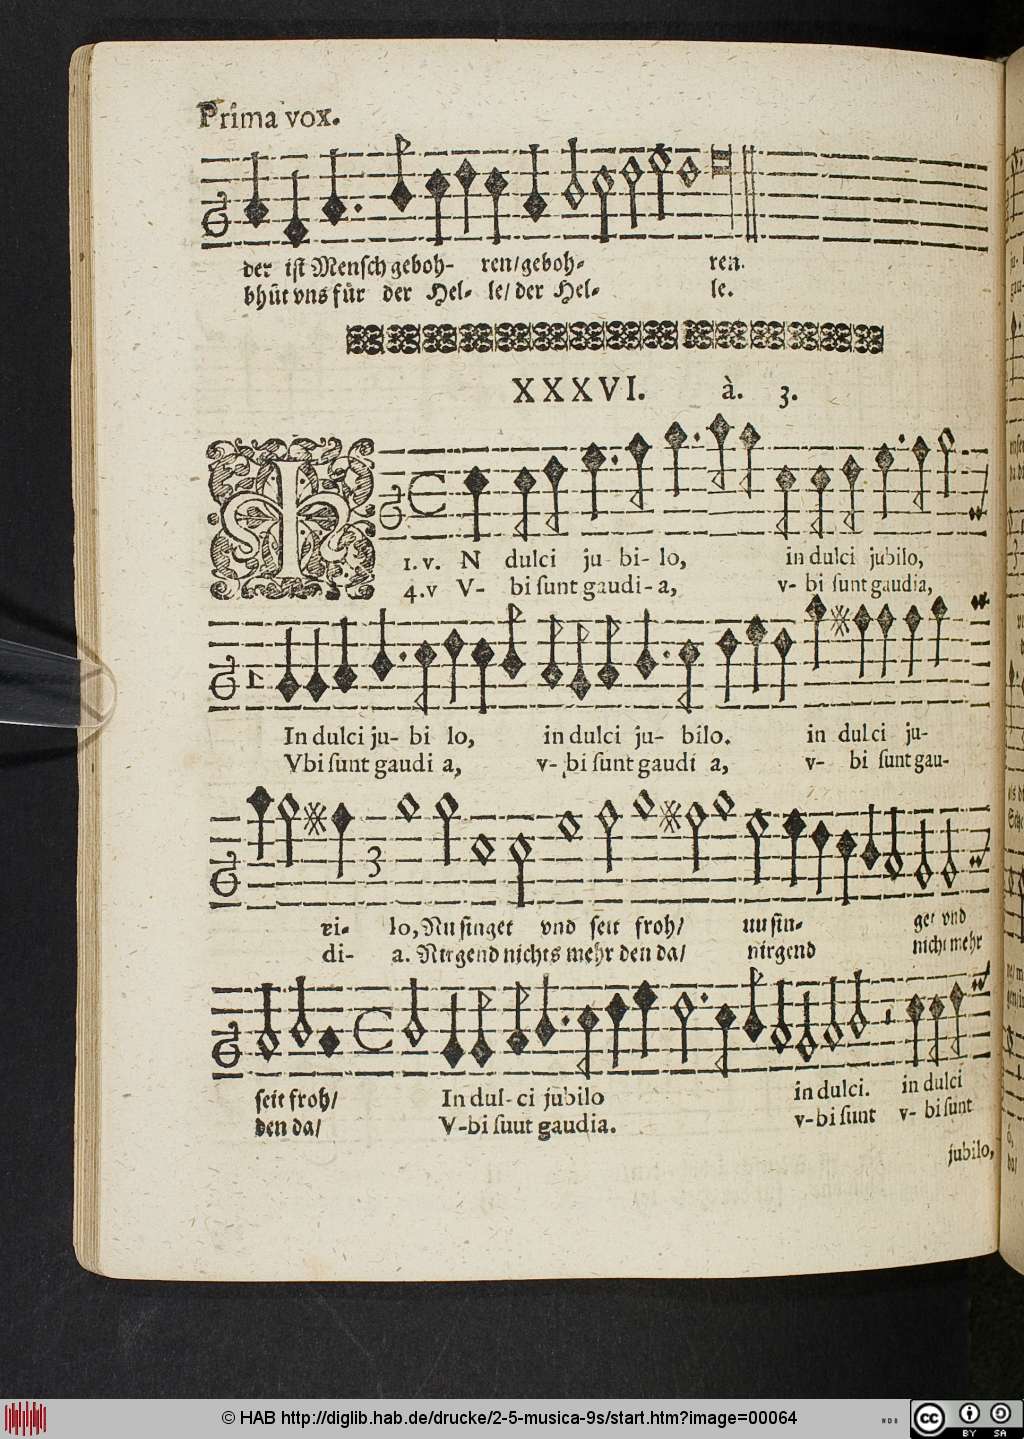 Prima vox.
der ist Mensch geboh- ren/geboh- ren.
bhüt vns für der Hel- le/ der Hel- le.
XXXVI. à. 3.
I
1. v. N dulci ju- bi- lo, in dulci jubilo,
4.v V- bi sunt gaudi- a, v- bi sunt gaudia,
In dulci ju- bi lo, in dulci ju- bilo. in dulci ju-
Vbi sunt gaudi a, v- bi sunt gaudi a, v- bi sunt gau-
3
bi- lo, Nu singet vnd seit froh/ nu sin- get vnd
di- a. Nirgend nichts mehr den da/ nirgend nicht mehr
seit froh/ In dul- ci jubilo in dulci. in dulci
den da/ V-bi suut gaudia. v-bi sunt v- bi sunt
jubilo,
© HAB http://diglib.hab.de/drucke/2-5-musica-9s/start.htm?image=00064
cc BY SA